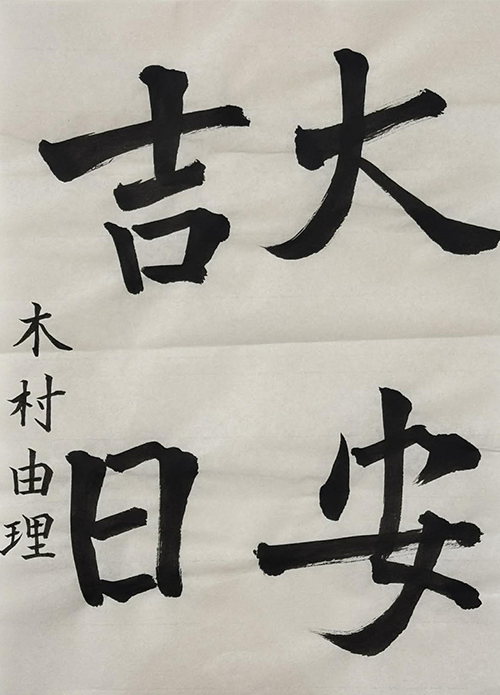 大安
吉日
木村由理